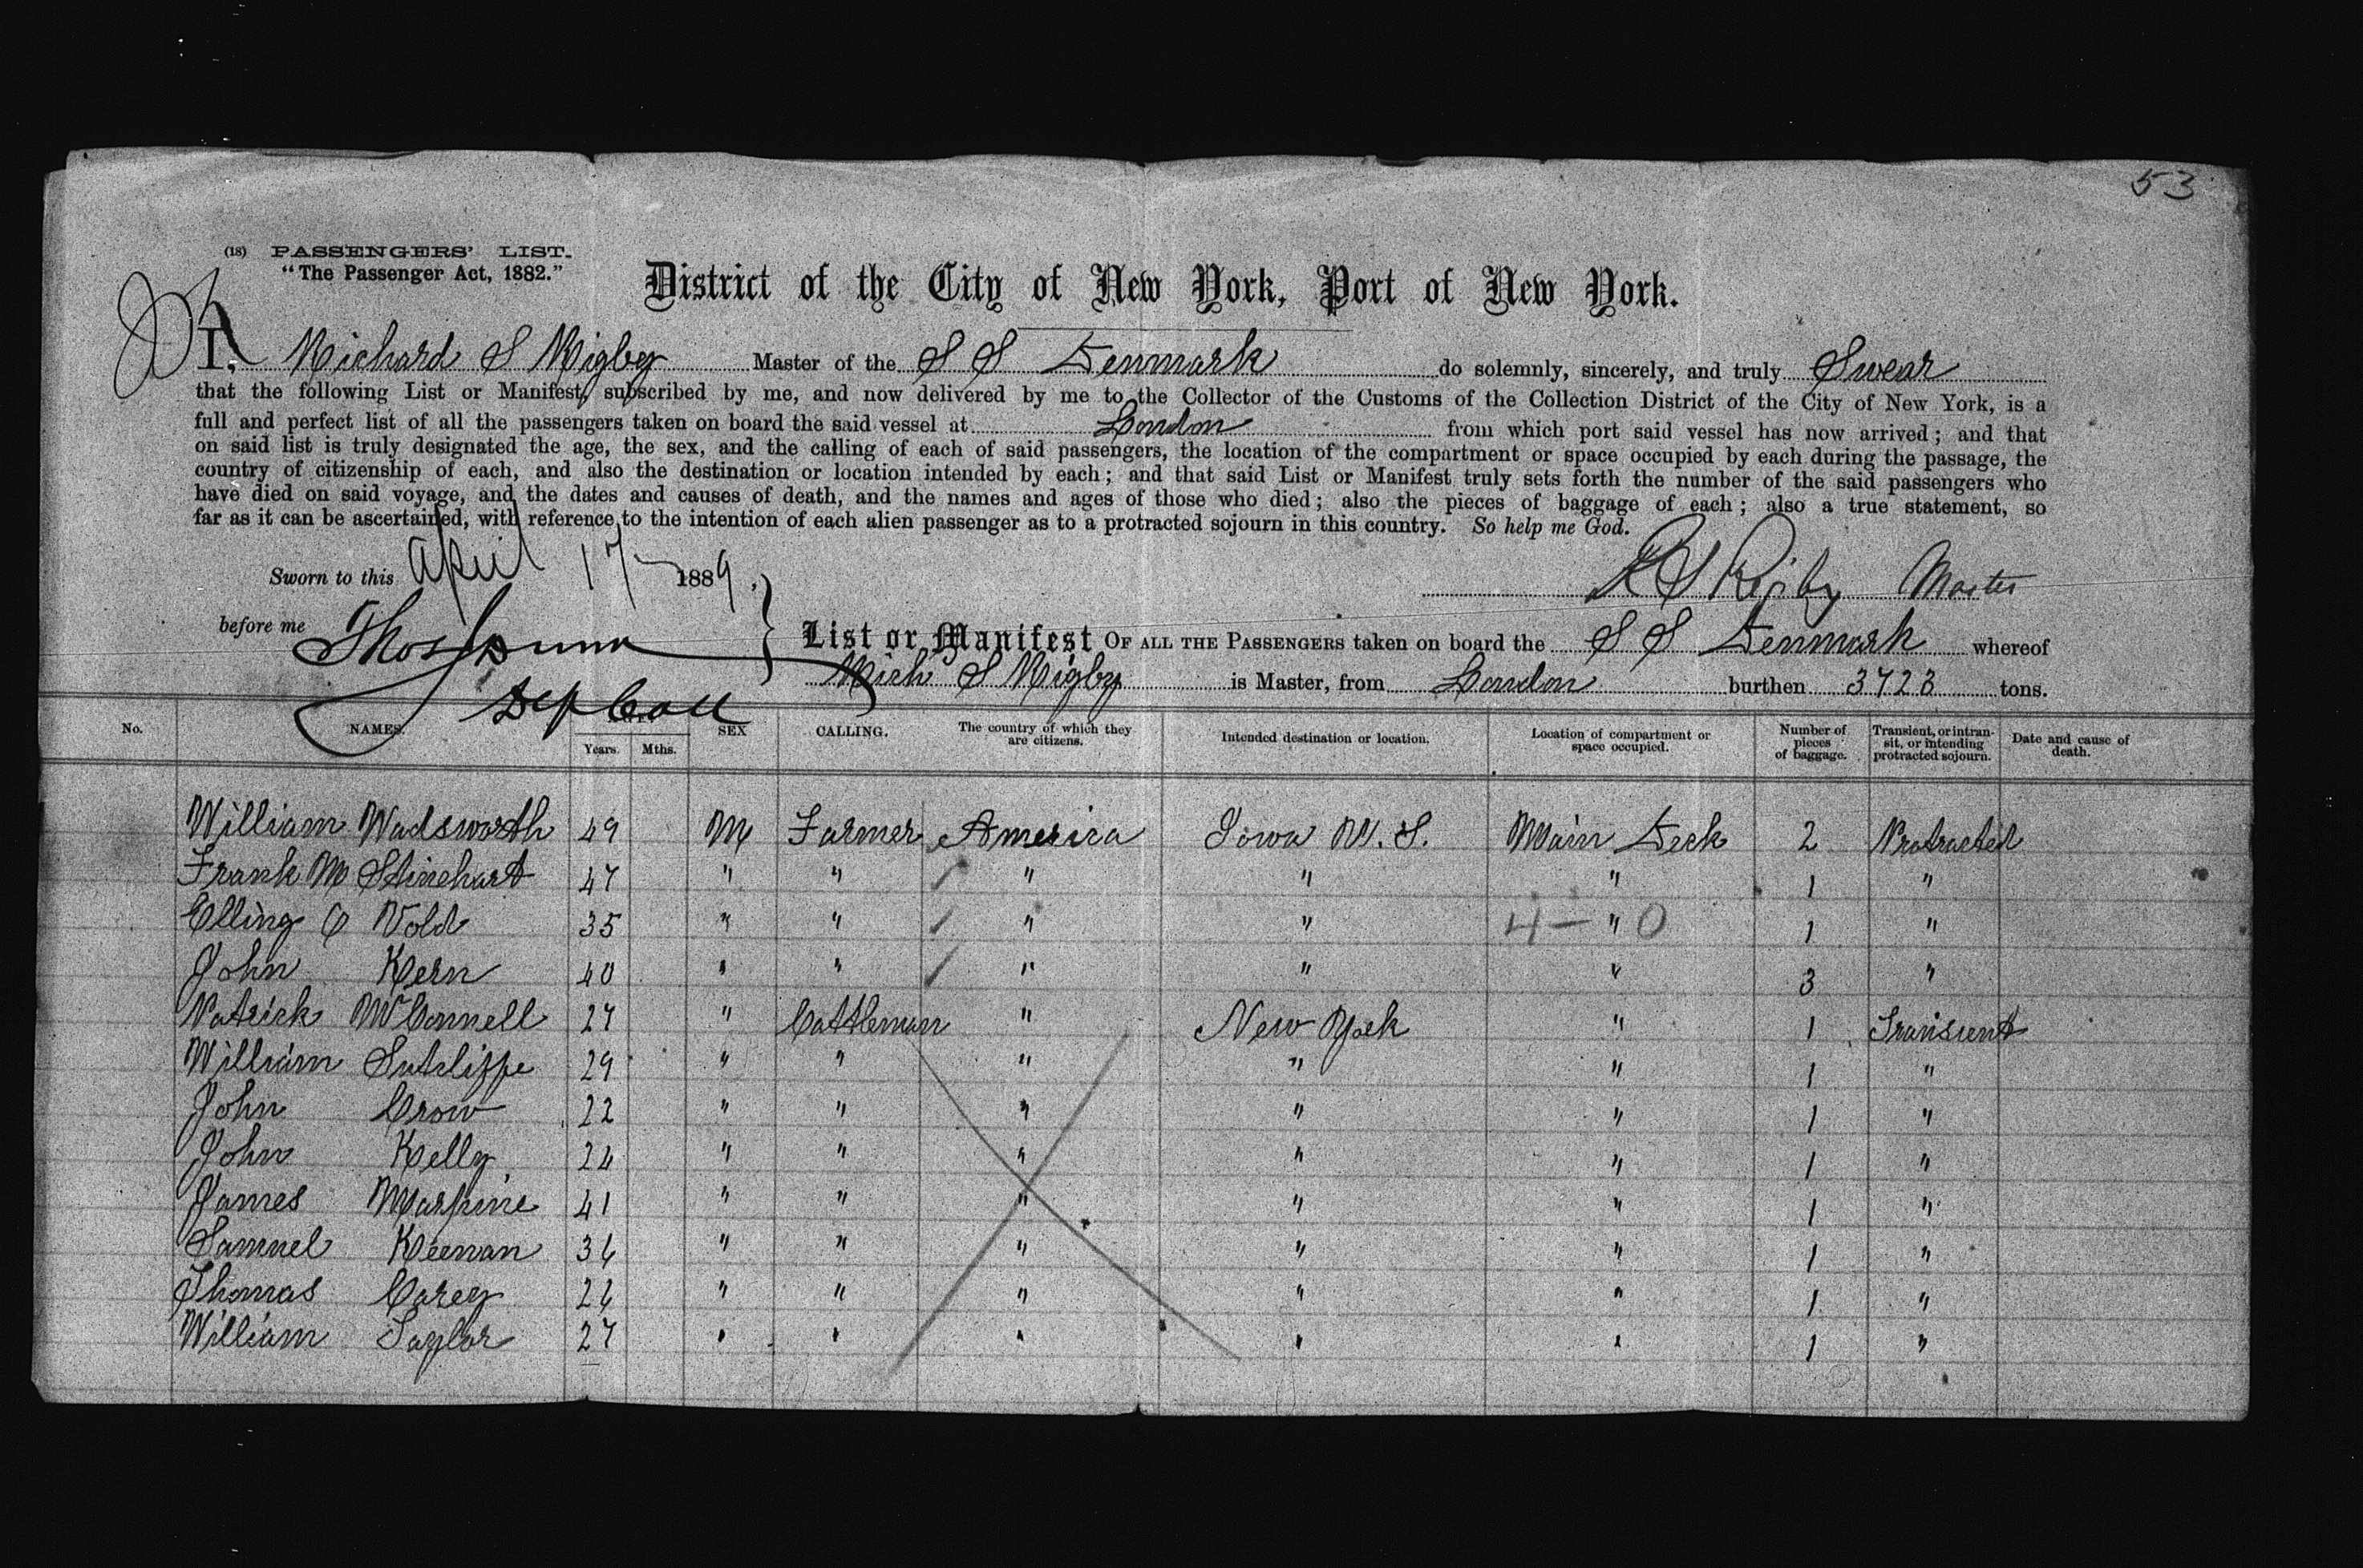 53
(18) PASSENGERS' LIST.
"The Passenger Act, 1882."
District of the City of New York, Port of New York.
I, Richard S Rigby Master of the S S Denmark do solemnly, sincerely, and truly Swear
that the following List or Manifest, subscribed by me, and now delivered by me to the Collector of the Customs of the Collection District of the City of New York, is a
full and perfect list of all the passengers taken on board the said vessel at London from which port said vessel has now arrived; and that
on said list is truly designated the age, the sex, and the calling of each of said passengers, the location of the compartment or space occupied by each during the passage, the
country of citizenship of each, and also the destination or location intended by each; and that said List or Manifest truly sets forth the number of the said passengers who
have died on said voyage, and the dates and causes of death, and the names and ages of those who died; also the pieces of baggage of each; also a true statement, so
far as it can be ascertained, with reference to the intention of each alien passenger as to a protracted sojourn in this country. So help me God.
Sworn to this April 17 1889,
R S Rigby Master
before me Thos Dunn
List or Manifest OF ALL THE PASSENGERS taken on board the S S Denmark whereof
Rich S Rigby is Master, from London burthen 3723 tons.
Dep Coll
No. NAMES. Years. Mths. SEX CALLING. The country of which they are citizens. Intended destination or location. Location of compartment or space occupied. Number of pieces of baggage. Transient, or intransit, or intending protracted sojourn. Date and cause of death.
William Wadsworth 49 M Farmer America Iowa U.S. Main Deck 2 Protracted
Frank M Stinehart 47 " " " " " 1 "
Elling O Vold 35 " " " " 4 - " 0 1 "
John Kern 40 " " " " " 3 "
Patrick McConnell 27 " Cattleman " New York " 1 Transient
William Sutcliffe 29 " " " " " 1 "
John Crow 22 " " " " " 1 "
John Kelly 24 " " " " " 1 "
James Marpine 41 " " " " " 1 "
Samuel Keenan 36 " " " " " 1 "
Thomas Carey 26 " " " " " 1 "
William Taylor 27 " " " " " 1 "